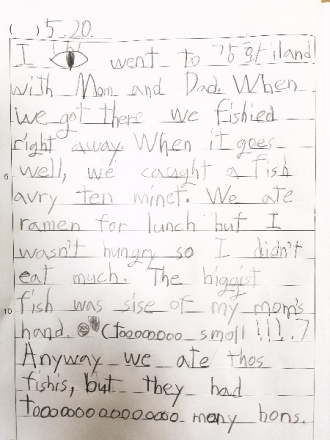 ( ) 5.20.
I went to 강화 iland
with Mom and Dad. When
we got there we fishied
right away. When it goes
well, we caught a fish
avry ten minet. We ate
ramen for lunch but I
wasn't hungry so I didn't
eat much. The biggist
fish was sise of my mom's
hand. (tooooooo smoll !!!.)
Anyway we ate thos
fishis, but they had
tooooooooooooo many bons.
5
10